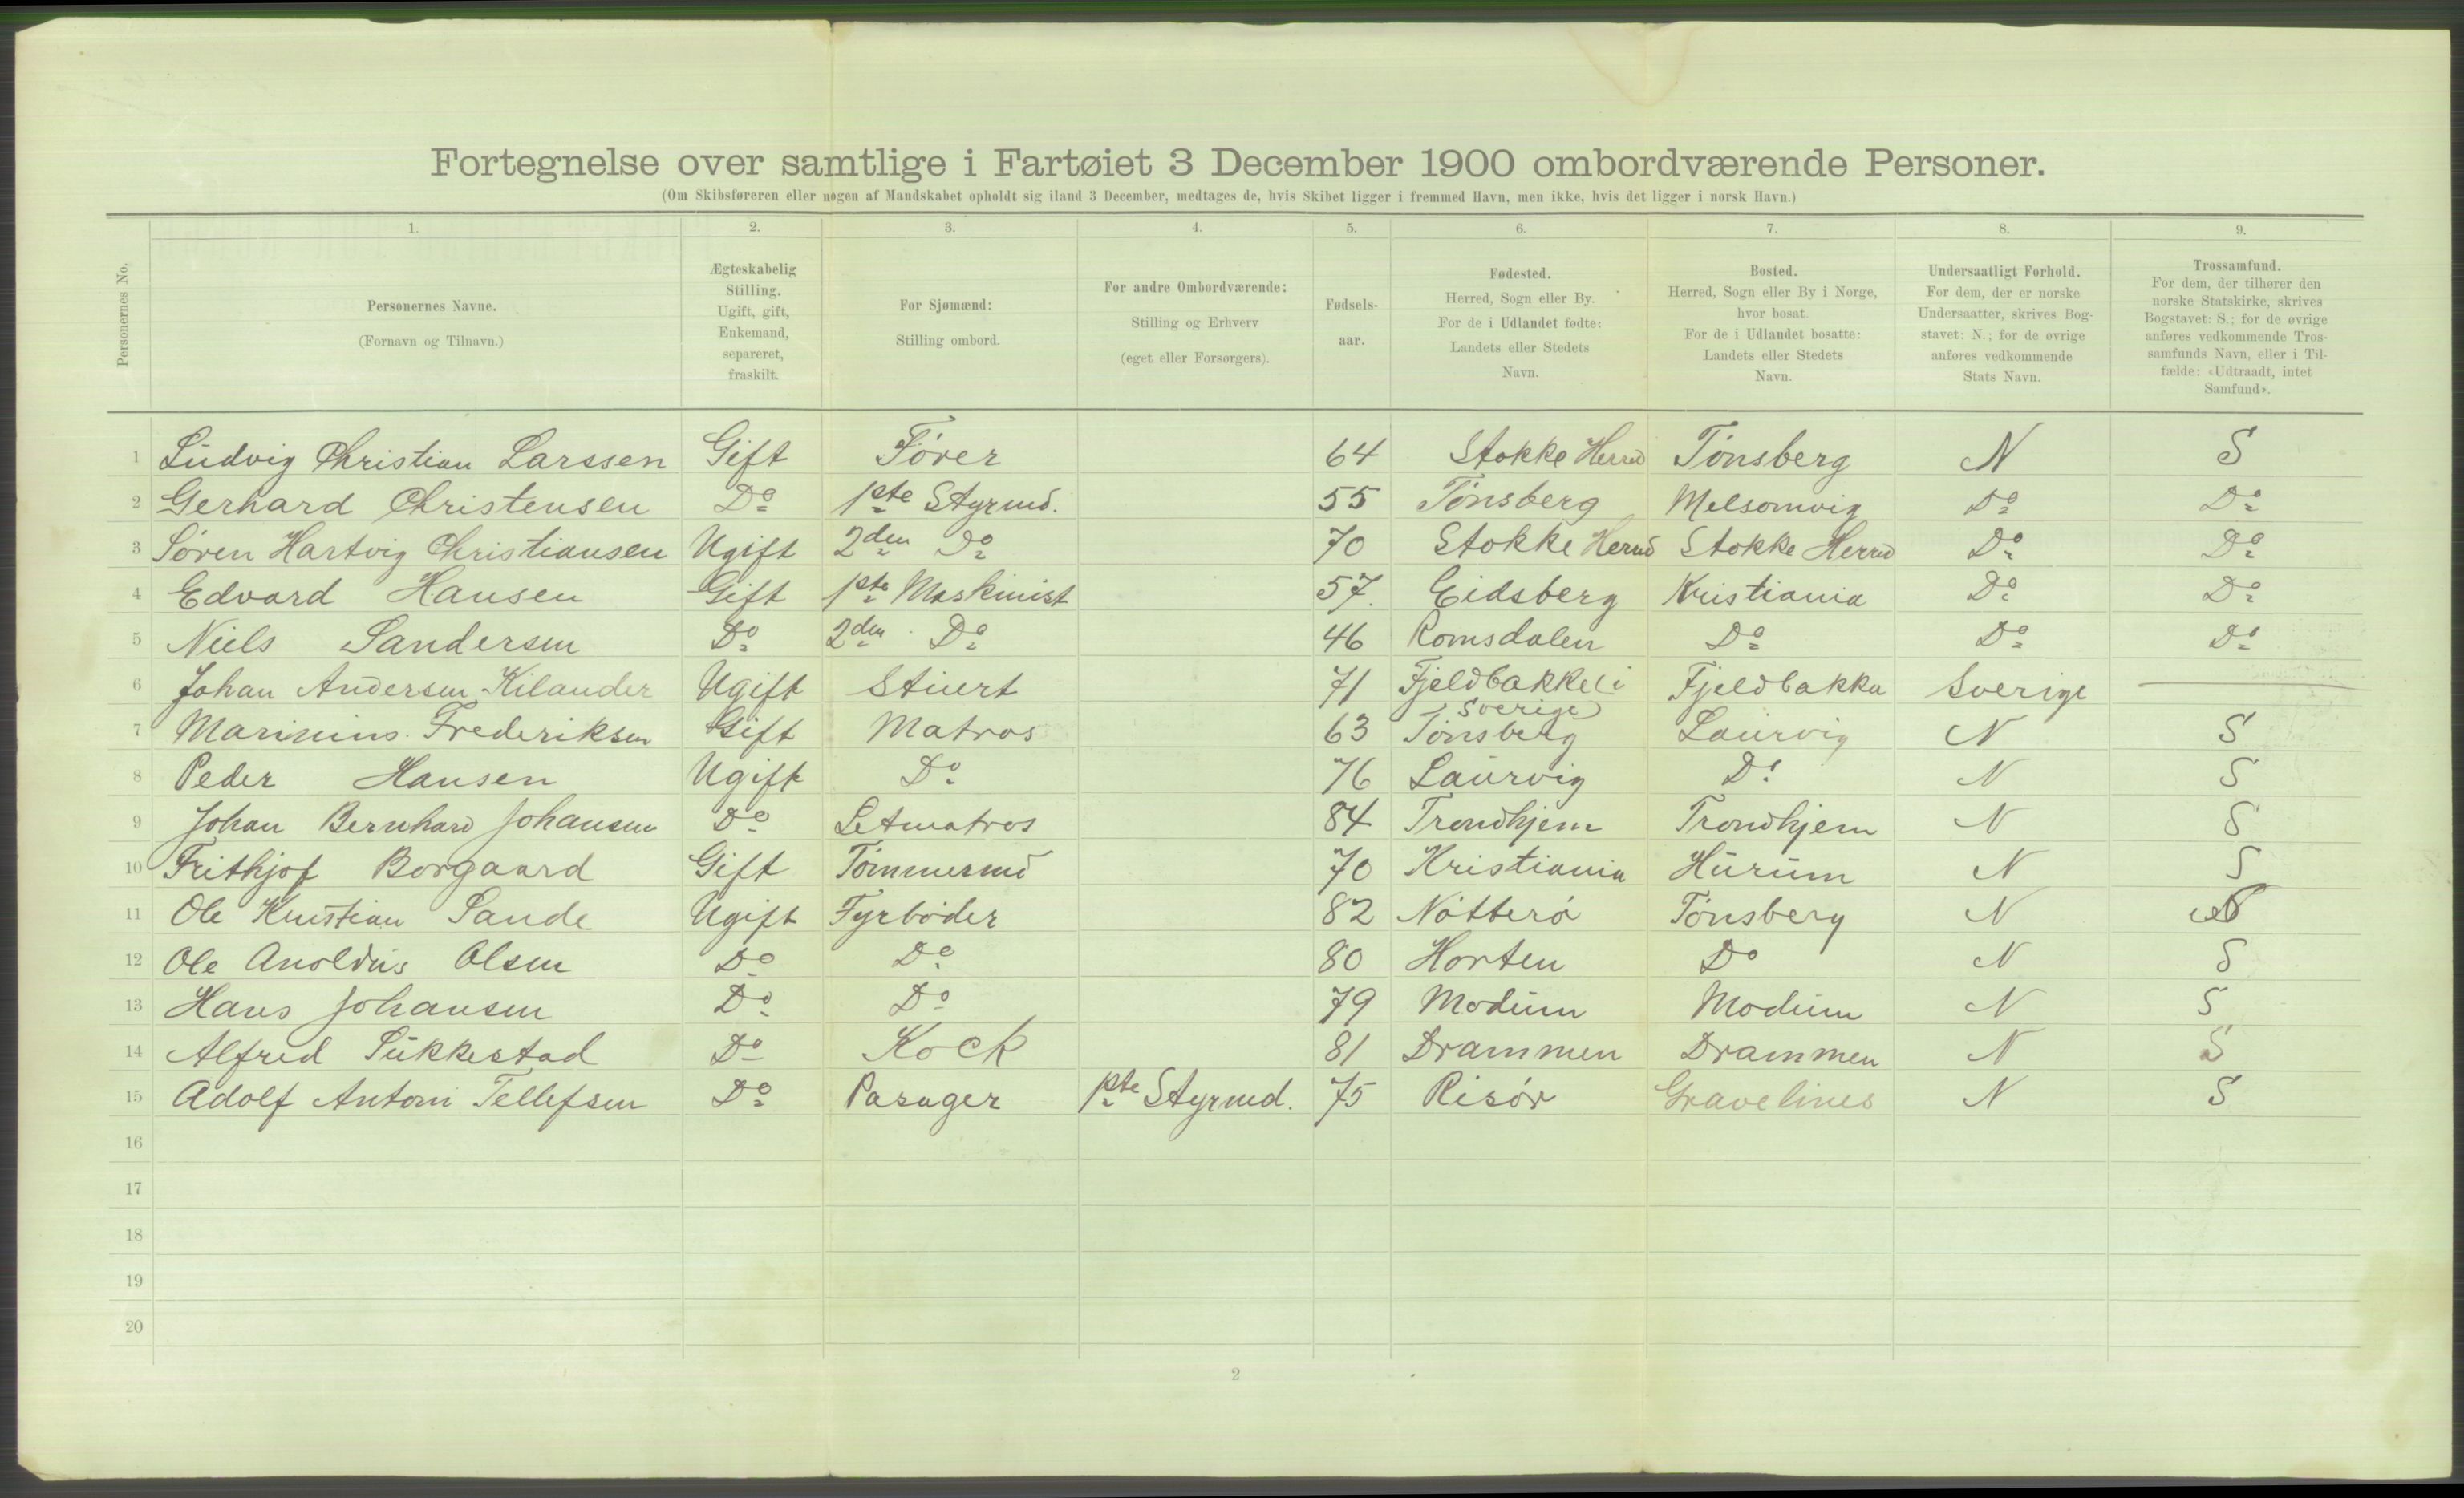 Fortegnelse over samtlige i Fartøiet 3 December 1900 ombordværende Personer.
(Om Skibsføreren eller nogen af Mandskabet opholdt sig iland 3 December, medtages de, hvis Skibet ligger i fremmed Havn, men ikke, hvis det ligger i norsk Havn.)
Personernes No.
1.
Personernes Navne.
(Fornavn og Tilnavn.)
2.
Ægteskabelig
Stilling.
Ugift, gift,
Enkemand,
separeret,
fraskilt.
3.
For Sjømænd:
Stilling ombord.
4.
For andre Ombordværende:
Stilling og Erhverv
(eget eller Forsørgers).
5.
Fødsels-
aar.
6.
Fødested.
Herred, Sogn eller By.
For de i Udlandet fødte:
Landets eller Stedets
Navn.
7.
Bosted.
Herred, Sogn eller By i Norge,
hvor bosat.
For de i Udlandet bosatte:
Landets eller Stedets
Navn.
8.
Undersaatligt Forhold.
For dem, der er norske
Undersaatter, skrives Bog-
stavet: N.; for de øvrige
anføres vedkommende
Stats Navn.
9.
Trossamfund.
For dem, der tilhører den
norske Statskirke, skrives
Bogstavet: S.; for de øvrige
anføres vedkommende Tros-
samfunds Navn, eller i Til-
fælde: «Udtraadt, intet
Samfund».
1 Ludvig Christian Larssen Gift Fører 64 Stokke Herred Tönsberg N S
2 Gerhard Christensen Do 1ste Styrmd. 55 Tönsberg Melsomvig Do Do
3 Sören Hartvig Christiansen Ugift 2den Do 70 Stokke Herred Stokke Herred Do Do
4 Edvard Hansen Gift 1ste Maskinist 57. Eidsberg Kristiania Do Do
5 Niels Sandersen Do 2den Do 46 Romsdalen Do Do Do
6 Johan Andersen Kilander Ugift Stiuert 71 Fjeldbakke (i Sverige) Fjeldbakka Sverige —
7 Marinius Frederiksen Gift Matros 63 Tönsberg Laurvig N S
8 Peder Hansen Ugift Do 76 Laurvig Do N S
9 Johan Bernhard Johansen Do Letmatros 84 Trondhjem Trondhjem N S
10 Frithjof Borgaard Gift Tömmermd 70 Kristiania Hurum N S
11 Ole Kristian Sande Ugift Fyrböder 82 Nötterö Tönsberg N S
12 Ole Anoldus Olsen Do Do 80 Horten Do N S
13 Hans Johansen Do Do 79 Modum Modum N S
14 Alfred Sukkestad Do Kock 81 Drammen Drammen N S
15 Adolf Antoni Tellefsen Do Pasager 1ste Styrmd. 75 Risör Gravelines N S
16
17
18
19
20
2